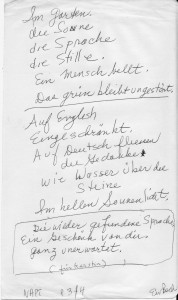 Im Garten
die Sonne
die Sprache
die Stille.
Ein Mensch bellt.
Das grün bleibt ungestört.
Auf English
Eingeschränkt.
Auf Deutsch fliessen
die Gedakke
wie Wasser über die
Steine
Im hellen Sonnenlicht.
Die wieder gefundene Sprache
Ein Geschenk von dir
ganz unerwartet.
VAPC